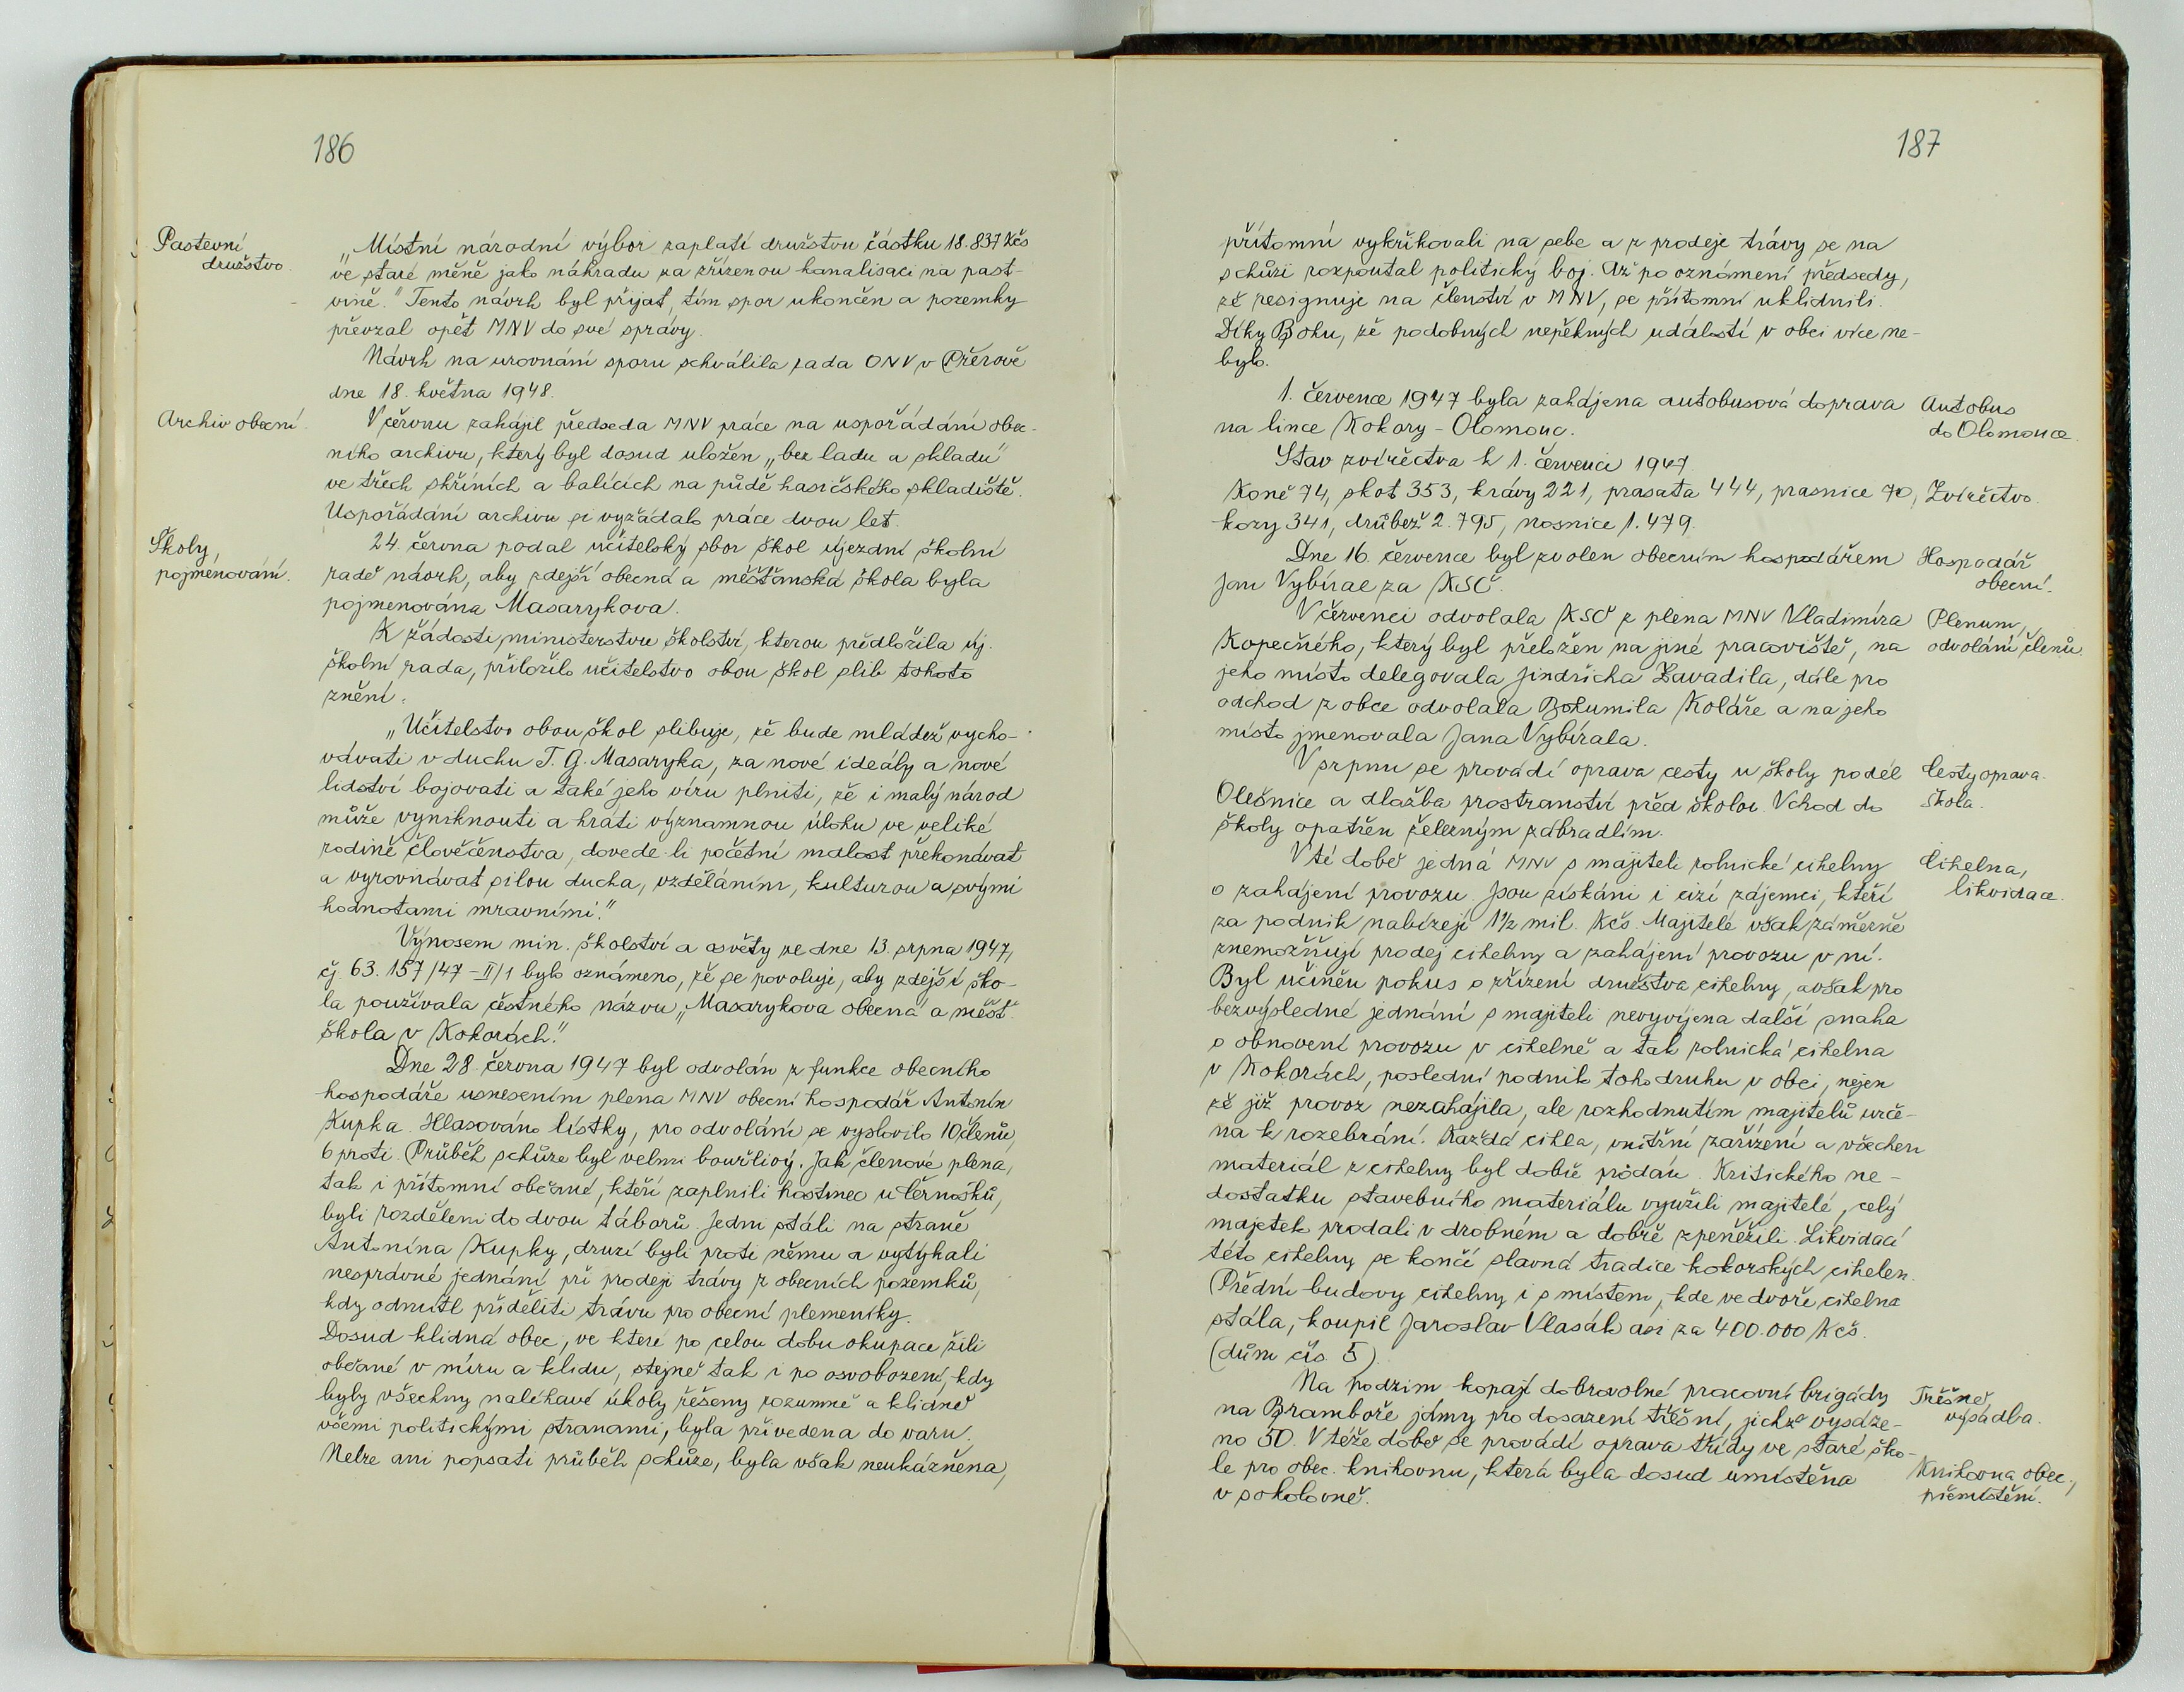 186
Pastevní
družstvo.
„Místní národní výbor zaplatí družstvu částku 18.837 Kčs
ve staré měně jako náhradu za zřízenou kanalisaci na past-
vině." Tento návrh byl přijat, tím spor ukončen a pozemky
převzal opět MNV do své správy.
Návrh na urovnání sporu schválila rada ONV v Přerově
dne 18. května 1948.
Archiv obecní.
V červnu zahájil předseda MNV práce na uspořádání obec-
ního archivu, který byl dosud uložen „bez ladu a skladu"
ve třech skříních a balících na půdě hasičského skladiště.
Uspořádání archivu si vyžádalo práce dvou let.
Školy,
pojmenování.
24. června podal učitelský sbor škol újezdní školní
radě návrh, aby zdejší obecná a měšťanská škola byla
pojmenována Masarykova.
K žádosti ministerstvu školství, kterou předložila új.
školní rada, přiložilo učitelstvo obou škol slib tohoto
znění:
„Učitelstvo obou škol slibuje, že bude mládež vycho-
vávati v duchu T. G. Masaryka, za nové ideály a nové
lidství bojovati a také jeho víru plniti, že i malý národ
může vyniknouti a hráti významnou úlohu ve veliké
rodině člověčenstva, dovede-li početní malost překonávat
a vyrovnávat silou ducha, vzděláním, kulturou a svými
hodnotami mravními."
Výnosem min. školství a osvěty ze dne 13. srpna 1947,
čj. 63.157/47-II/1 bylo oznámeno, že se povoluje, aby zdejší ško-
la používala čestného názvu „Masarykova obecná a měšť.
škola v Kokorách."
Dne 28. června 1947 byl odvolán z funkce obecního
hospodáře usnesením plena MNV obecní hospodář Antonín
Kupka. Hlasováno lístky, pro odvolání se vyslovilo 10 členů,
6 proti. Průběh schůze byl velmi bouřlivý. Jak členové plena,
tak i přítomní občané, kteří zaplnili hostinec u Černošků,
byli rozděleni do dvou táborů. Jedni stáli na straně
Antonína Kupky, druzí byli proti němu a vytýkali
nesprávné jednání při prodeji trávy z obecních pozemků,
kdy odmítl přiděliti trávu pro obecní plemeníky.
Dosud klidná obec, ve které po celou dobu okupace žili
občané v míru a klidu, stejně tak i po osvobození, kdy
byly všechny naléhavé úkoly řešeny rozumně a klidně
všemi politickými stranami, byla přivedena do varu.
Nelze ani popsati průběh schůze, byla však neukázněná,
187
přítomní vykřikovali na sebe a z prodeje trávy se na
schůzi rozpoutal politický boj. Až po oznámení předsedy,
že resignuje na členství v MNV, se přítomní uklidnili.
Díky Bohu, že podobných nepěkných událostí v obci více ne-
bylo.
1. července 1947 byla zahájena autobusová doprava
na lince Kokory - Olomouc.
Autobus
do Olomouce.
Stav zvířectva k 1. červenci 1947.
Koně 74, skot 353, krávy 221, prasata 444, prasnice 70,
kozy 341, drůbež 2.795, nosnice 1.479.
Zvířectvo.
Dne 16. července byl zvolen obecním hospodářem
Jan Vybíral za KSČ.
Hospodář
obecní.
V červenci odvolala KSČ z plena MNV Vladimíra
Kopečného, který byl přeložen na jiné pracoviště, na
jeho místo delegovala Jindřicha Zavadila, dále pro
odchod z obce odvolala Bohumila Koláře a na jeho
místo jmenovala Jana Vybírala.
Plenum,
odvolání členů.
V srpnu se provádí oprava cesty u školy podél
Olešnice a dlažba prostranství před školou. Vchod do
školy opatřen železným zábradlím.
Cesty oprava.
škola.
V té době jedná MNV s majiteli rolnické cihelny
o zahájení provozu. Jsou získáni i cizí zájemci, kteří
za podnik nabízejí 1½ mil. Kčs. Majitelé však záměrně
znemožňují prodej cihelny a zahájení provozu v ní.
Byl učiněn pokus o zřízení družstva cihelny, avšak pro
bezvýsledné jednání s majiteli nevyvíjena další snaha
o obnovení provozu v cihelně a tak rolnická cihelna
v Kokorách, poslední podnik toho druhu v obci, nejen
že již provoz nezahájila, ale rozhodnutím majitelů urče-
na k rozebrání. Každá cihla, vnitřní zařízení a všechen
materiál z cihelny byl dobře prodán. Kritického ne-
dostatku stavebního materiálu využili majitelé, celý
majetek prodali v drobném a dobře zpeněžili. Likvidací
této cihelny se končí slavná tradice kokorských cihelen.
Přední budovy cihelny i s místem, kde ve dvoře cihelna
stála, koupil Jaroslav Vlasák asi za 400.000 Kčs.
(dům čís. 5).
Cihelna,
likvidace.
Na podzim kopají dobrovolné pracovní brigády
na Bramboře jámy pro dosazení třešní, jichž vysáze-
no 50. V téže době se provádí oprava třídy ve staré ško-
le pro obec. knihovnu, která byla dosud umístěna
v sokolovně.
Třešně,
výsadba.
Knihovna obec.,
přemístění.